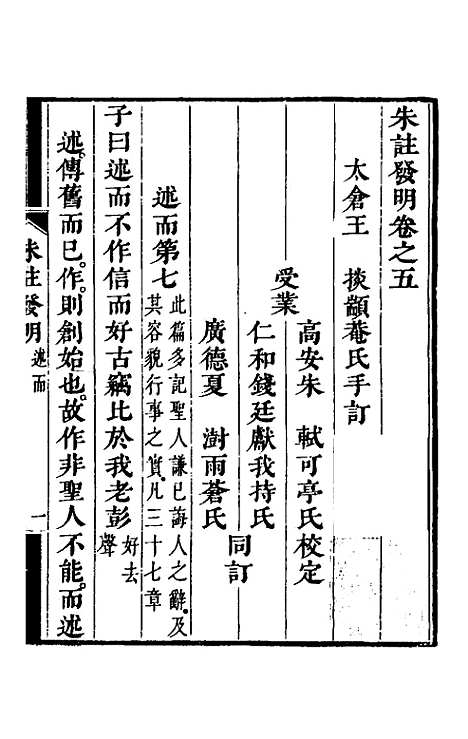 朱註發明卷之五
太倉王 掞顓菴氏手訂
受業
高安朱 軾可亭氏校定
仁和錢廷獻我持氏
廣德夏 澍雨蒼氏
同訂
述而第七
此篇多記聖人謙已誨人之辭及
其容貌行事之實凡三十七章
子曰述而不作信而好古竊比於我老彭
好去
聲
述傳舊而已。作。則創始也。故作非聖人不能。而述
朱註發明
述而
一